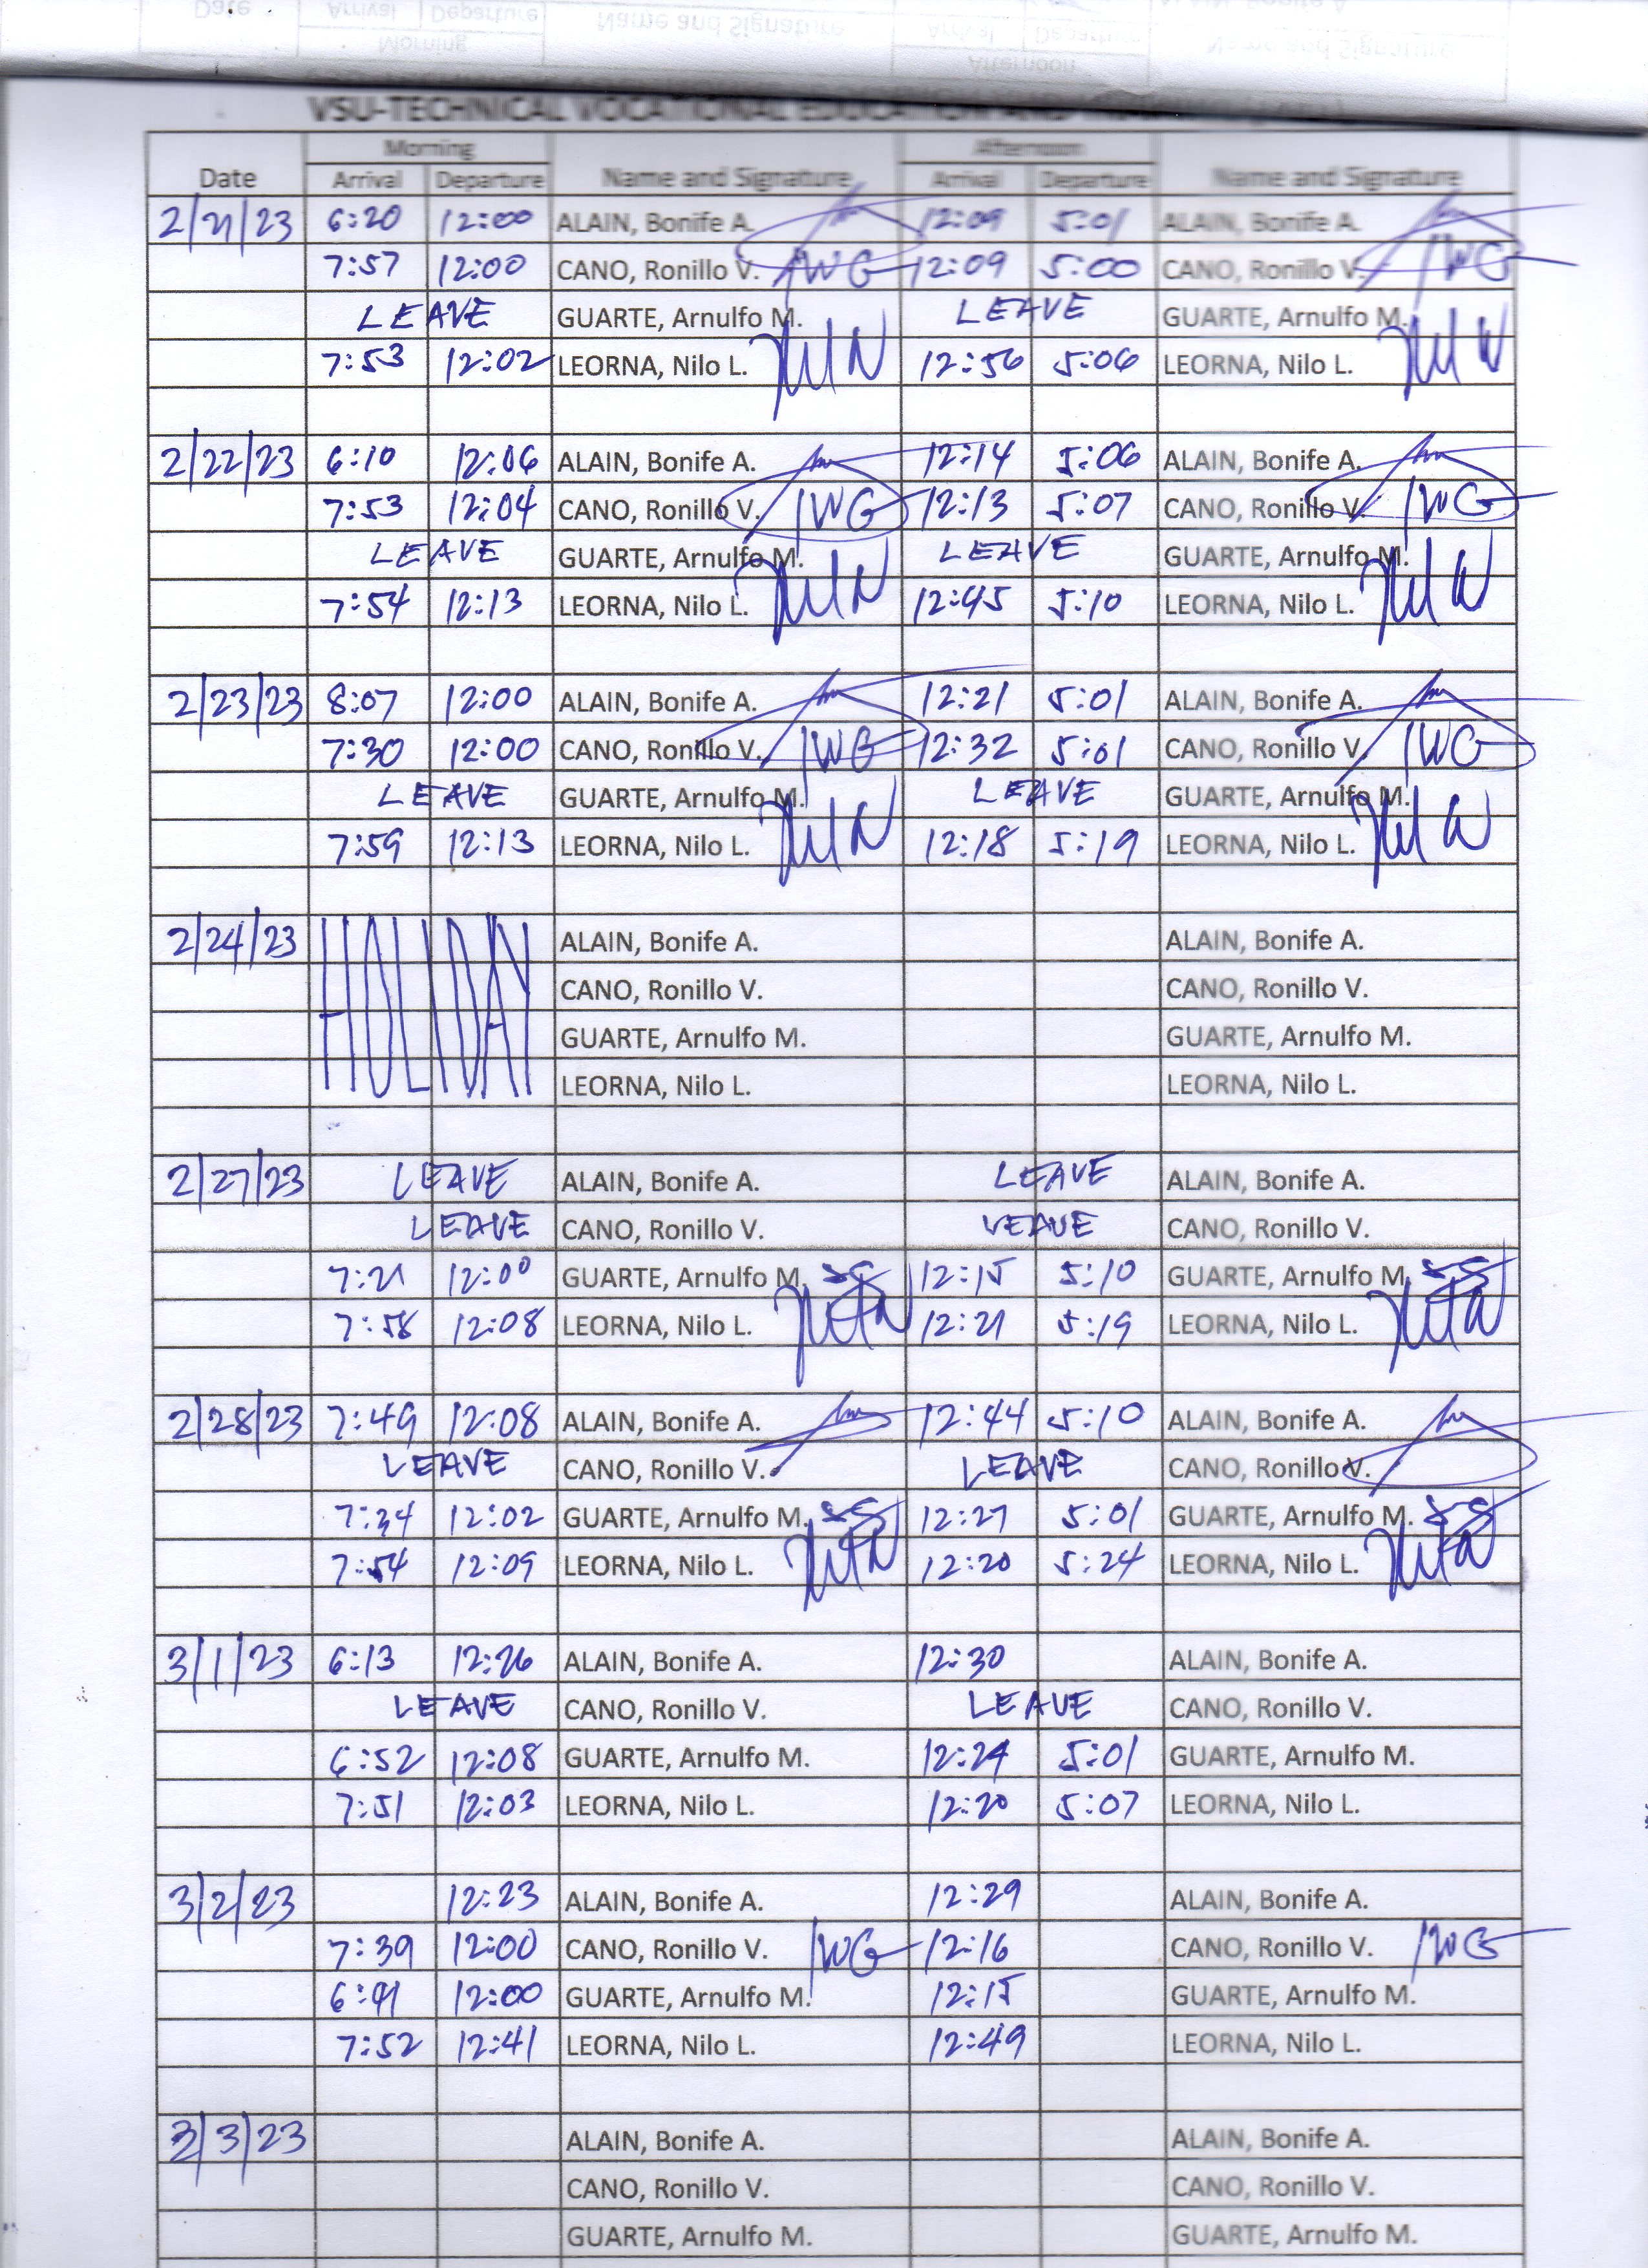 VSU-TECHNICAL VOCATIONAL EDUCATION AND
Morning Afternoon
Date Arrival Departure Name and Signature Arrival Departure Name and Signature
2/21/23 6:20 12:00 ALAIN, Bonife A. 12:09 5:01 ALAIN, Bonife A.
7:57 12:00 CANO, Ronillo V. 12:09 5:00 CANO, Ronillo V.
LEAVE GUARTE, Arnulfo M. LEAVE GUARTE, Arnulfo M.
7:53 12:02 LEORNA, Nilo L. 12:56 5:06 LEORNA, Nilo L.
2/22/23 6:10 12:06 ALAIN, Bonife A. 12:14 5:06 ALAIN, Bonife A.
7:53 12:04 CANO, Ronillo V. 12:13 5:07 CANO, Ronillo V.
LEAVE GUARTE, Arnulfo M. LEAVE GUARTE, Arnulfo M.
7:54 12:13 LEORNA, Nilo L. 12:45 5:10 LEORNA, Nilo L.
2/23/23 8:07 12:00 ALAIN, Bonife A. 12:21 5:01 ALAIN, Bonife A.
7:30 12:00 CANO, Ronillo V. 12:32 5:01 CANO, Ronillo V.
LEAVE GUARTE, Arnulfo M. LEAVE GUARTE, Arnulfo M.
7:59 12:13 LEORNA, Nilo L. 12:18 5:19 LEORNA, Nilo L.
2/24/23 HOLIDAY ALAIN, Bonife A. ALAIN, Bonife A.
CANO, Ronillo V. CANO, Ronillo V.
GUARTE, Arnulfo M. GUARTE, Arnulfo M.
LEORNA, Nilo L. LEORNA, Nilo L.
2/27/23 LEAVE ALAIN, Bonife A. LEAVE ALAIN, Bonife A.
LEAVE CANO, Ronillo V. LEAVE CANO, Ronillo V.
7:21 12:00 GUARTE, Arnulfo M. 12:15 5:10 GUARTE, Arnulfo M.
7:58 12:08 LEORNA, Nilo L. 12:21 5:19 LEORNA, Nilo L.
2/28/23 7:49 12:08 ALAIN, Bonife A. 12:44 5:10 ALAIN, Bonife A.
LEAVE CANO, Ronillo V. LEAVE CANO, Ronillo V.
7:34 12:02 GUARTE, Arnulfo M. 12:27 5:01 GUARTE, Arnulfo M.
7:54 12:09 LEORNA, Nilo L. 12:20 5:24 LEORNA, Nilo L.
3/1/23 6:13 12:26 ALAIN, Bonife A. 12:30 ALAIN, Bonife A.
LEAVE CANO, Ronillo V. LEAVE CANO, Ronillo V.
6:52 12:08 GUARTE, Arnulfo M. 12:24 5:01 GUARTE, Arnulfo M.
7:51 12:03 LEORNA, Nilo L. 12:20 5:07 LEORNA, Nilo L.
3/2/23 12:23 ALAIN, Bonife A. 12:29 ALAIN, Bonife A.
7:39 12:00 CANO, Ronillo V. 12:16 CANO, Ronillo V.
6:41 12:00 GUARTE, Arnulfo M. 12:15 GUARTE, Arnulfo M.
7:52 12:41 LEORNA, Nilo L. 12:49 LEORNA, Nilo L.
3/3/23 ALAIN, Bonife A. ALAIN, Bonife A.
CANO, Ronillo V. CANO, Ronillo V.
GUARTE, Arnulfo M. GUARTE, Arnulfo M.